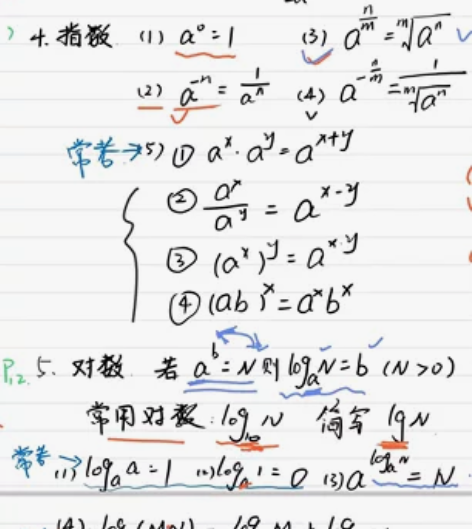 4. 指数 (1) a⁰=1 (3) a^(n/m)=ᵐ√(aⁿ)
(2) a⁻ⁿ=1/aⁿ (4) a^(-n/m)=1/ᵐ√(aⁿ)
常考→(5) ① aˣ·aʸ=aˣ⁺ʸ
② aˣ/aʸ=aˣ⁻ʸ
③ (aˣ)ʸ=a^(x·y)
④ (ab)ˣ=aˣbˣ
P₁₂ 5. 对数 若 aᵇ=N 则 logₐN=b (N>0)
常用对数: log₁₀N 简写 lgN
常考→(1) logₐa=1 (2) logₐ1=0 (3) a^(logₐN)=N